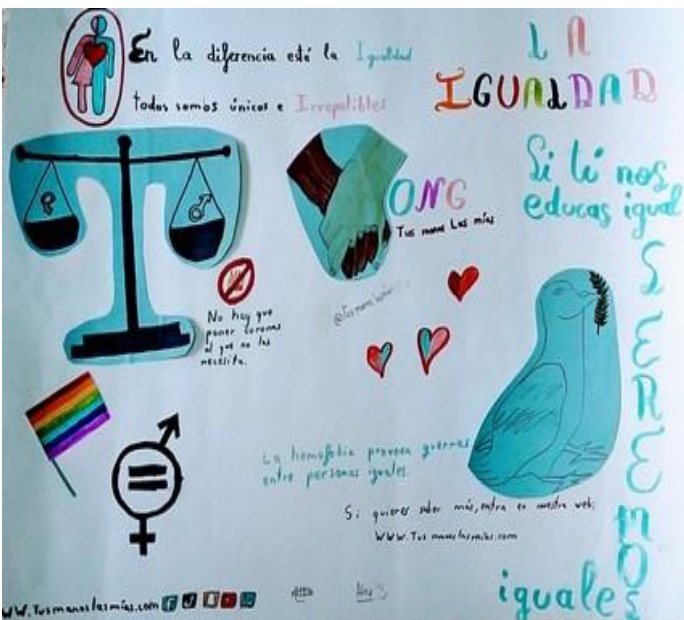 En la diferencia está la Igualdad
todos somos únicos e Irrepetibles
LA
IGUALDAD
Si tú nos
educas igual
SEREMOS
iguales
ONG
Tus manos Las mías
No hay que
poner coronas
al que no las
necesita.
La homofobia provoca guerras
entre personas iguales.
Si quieres saber más, entra en nuestra web:
WWW.Tus manos las mías.com
WW.Tusmanoslasmías.com